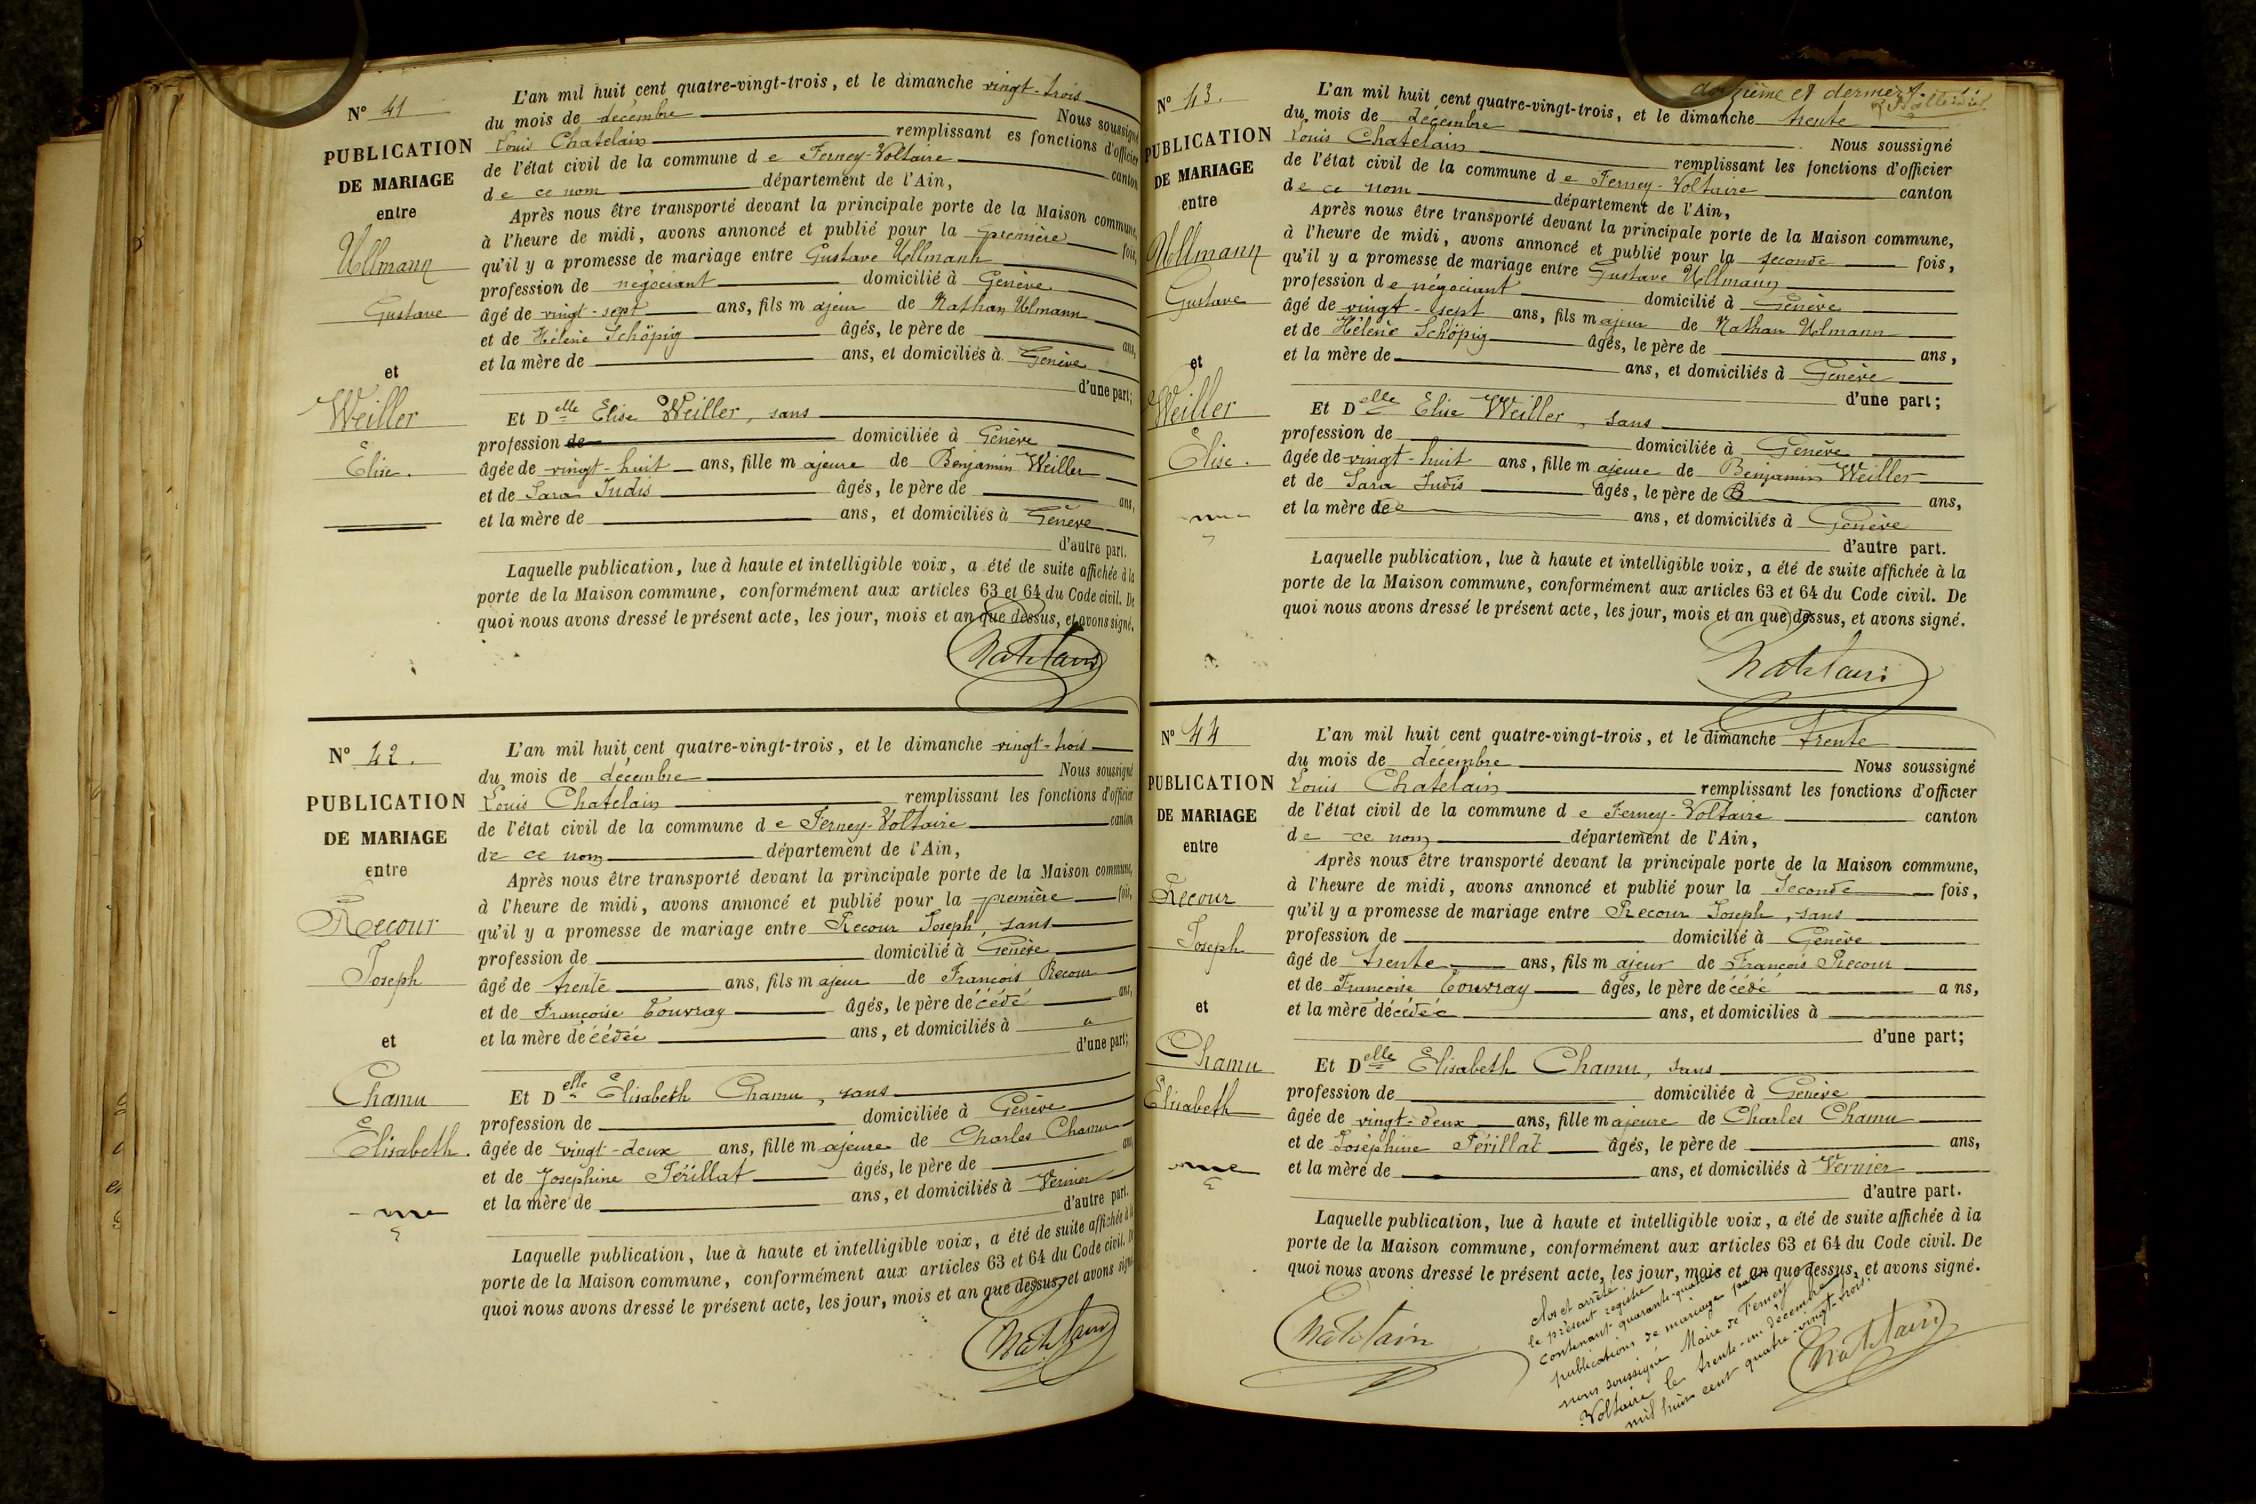 N° 41
PUBLICATION
DE MARIAGE
entre
Ullmann
Gustave
et
Weiller
Elise.
L'an mil huit cent quatre-vingt-trois, et le dimanche vingt-trois
du mois de décembre Nous soussigné
Louis Chatelain remplissant es fonctions d'officier
de l'état civil de la commune de Ferney-Voltaire canton
de ce nom département de l'Ain,
Après nous être transporté devant la principale porte de la Maison commune,
à l'heure de midi, avons annoncé et publié pour la première fois,
qu'il y a promesse de mariage entre Gustave Ullmann
profession de négociant domicilié à Genève
âgé de vingt-sept ans, fils majeur de Nathan Ulmann
et de Hélène Schöpig âgés, le père de ans,
et la mère de ans, et domiciliés à Genève
d'une part;
Et Delle Elise Weiller, sans
profession de domiciliée à Genève
âgée de vingt-huit ans, fille majeure de Benjamin Weiller
et de Sara Judis âgés, le père de ans,
et la mère de ans, et domiciliés à Genève
d'autre part.
Laquelle publication, lue à haute et intelligible voix, a été de suite affichée à la
porte de la Maison commune, conformément aux articles 63 et 64 du Code civil. De
quoi nous avons dressé le présent acte, les jour, mois et an que dessus, et avons signé.
Chatelain
N° 42.
PUBLICATION
DE MARIAGE
entre
Recour
Joseph
et
Chamu
Elisabeth.
L'an mil huit cent quatre-vingt-trois, et le dimanche vingt-trois
du mois de décembre Nous soussigné
Louis Chatelain remplissant les fonctions d'officier
de l'état civil de la commune de Ferney-Voltaire canton
de ce nom département de l'Ain,
Après nous être transporté devant la principale porte de la Maison commune,
à l'heure de midi, avons annoncé et publié pour la première fois,
qu'il y a promesse de mariage entre Recour Joseph, sans
profession de domicilié à Genève
âgé de trente ans, fils majeur de François Recour
et de Françoise Touvray âgés, le père décédé ans,
et la mère décédée ans, et domiciliés à
d'une part;
Et Delle Elisabeth Chamu, sans
profession de domiciliée à Genève
âgée de vingt-deux ans, fille majeure de Charles Chamu
et de Josephine Périllat âgés, le père de ans,
et la mère de ans, et domiciliés à Vernier
d'autre part.
Laquelle publication, lue à haute et intelligible voix, a été de suite affichée à la
porte de la Maison commune, conformément aux articles 63 et 64 du Code civil. D
quoi nous avons dressé le présent acte, les jour, mois et an que dessus, et avons signé
Chatelain
douzième et dernier f.
N° 43.
PUBLICATION
DE MARIAGE
entre
Ullmann
Gustave
et
Weiller
Elise.
L'an mil huit cent quatre-vingt-trois, et le dimanche trente
du mois de décembre Nous soussigné
Louis Chatelain remplissant les fonctions d'officier
de l'état civil de la commune de Ferney-Voltaire canton
de ce nom département de l'Ain,
Après nous être transporté devant la principale porte de la Maison commune,
à l'heure de midi, avons annoncé et publié pour la seconde fois,
qu'il y a promesse de mariage entre Gustave Ullmann
profession de négociant domicilié à Genève
âgé de vingt-sept ans, fils majeur de Nathan Ulmann
et de Hélène Schöpig âgés, le père de ans,
et la mère de ans, et domiciliés à Genève
d'une part;
Et Delle Elise Weiller, sans
profession de domiciliée à Genève
âgée de vingt-huit ans, fille majeure de Benjamin Weiller
et de Sara Judis âgés, le père de ans,
et la mère de ans, et domiciliés à Genève
d'autre part.
Laquelle publication, lue à haute et intelligible voix, a été de suite affichée à la
porte de la Maison commune, conformément aux articles 63 et 64 du Code civil. De
quoi nous avons dressé le présent acte, les jour, mois et an que dessus, et avons signé.
Chatelain
N° 44
PUBLICATION
DE MARIAGE
entre
Recour
Joseph
et
Chamu
Elisabeth
L'an mil huit cent quatre-vingt-trois, et le dimanche trente
du mois de décembre Nous soussigné
Louis Chatelain remplissant les fonctions d'officier
de l'état civil de la commune de Ferney-Voltaire canton
de ce nom département de l'Ain,
Après nous être transporté devant la principale porte de la Maison commune,
à l'heure de midi, avons annoncé et publié pour la seconde fois,
qu'il y a promesse de mariage entre Recour Joseph, sans
profession de domicilié à Genève
âgé de trente ans, fils majeur de François Recour
et de Françoise Touvray âgés, le père décédé ans,
et la mère décédée ans, et domiciliés à
d'une part;
Et Delle Elisabeth Chamu, sans
profession de domiciliée à Genève
âgée de vingt-deux ans, fille majeure de Charles Chamu
et de Joséphine Périllat âgés, le père de ans,
et la mère de ans, et domiciliés à Vernier
d'autre part.
Laquelle publication, lue à haute et intelligible voix, a été de suite affichée à la
porte de la Maison commune, conformément aux articles 63 et 64 du Code civil. De
quoi nous avons dressé le présent acte, les jour, mois et an que dessus, et avons signé.
Chatelain
Clos et arrêté
le présent registre
contenant quarante-quatre
publications de mariage par
nous soussigné Maire de Ferney
Voltaire le trente-un décembre
mil huit cent quatre-vingt-trois.
Chatelain